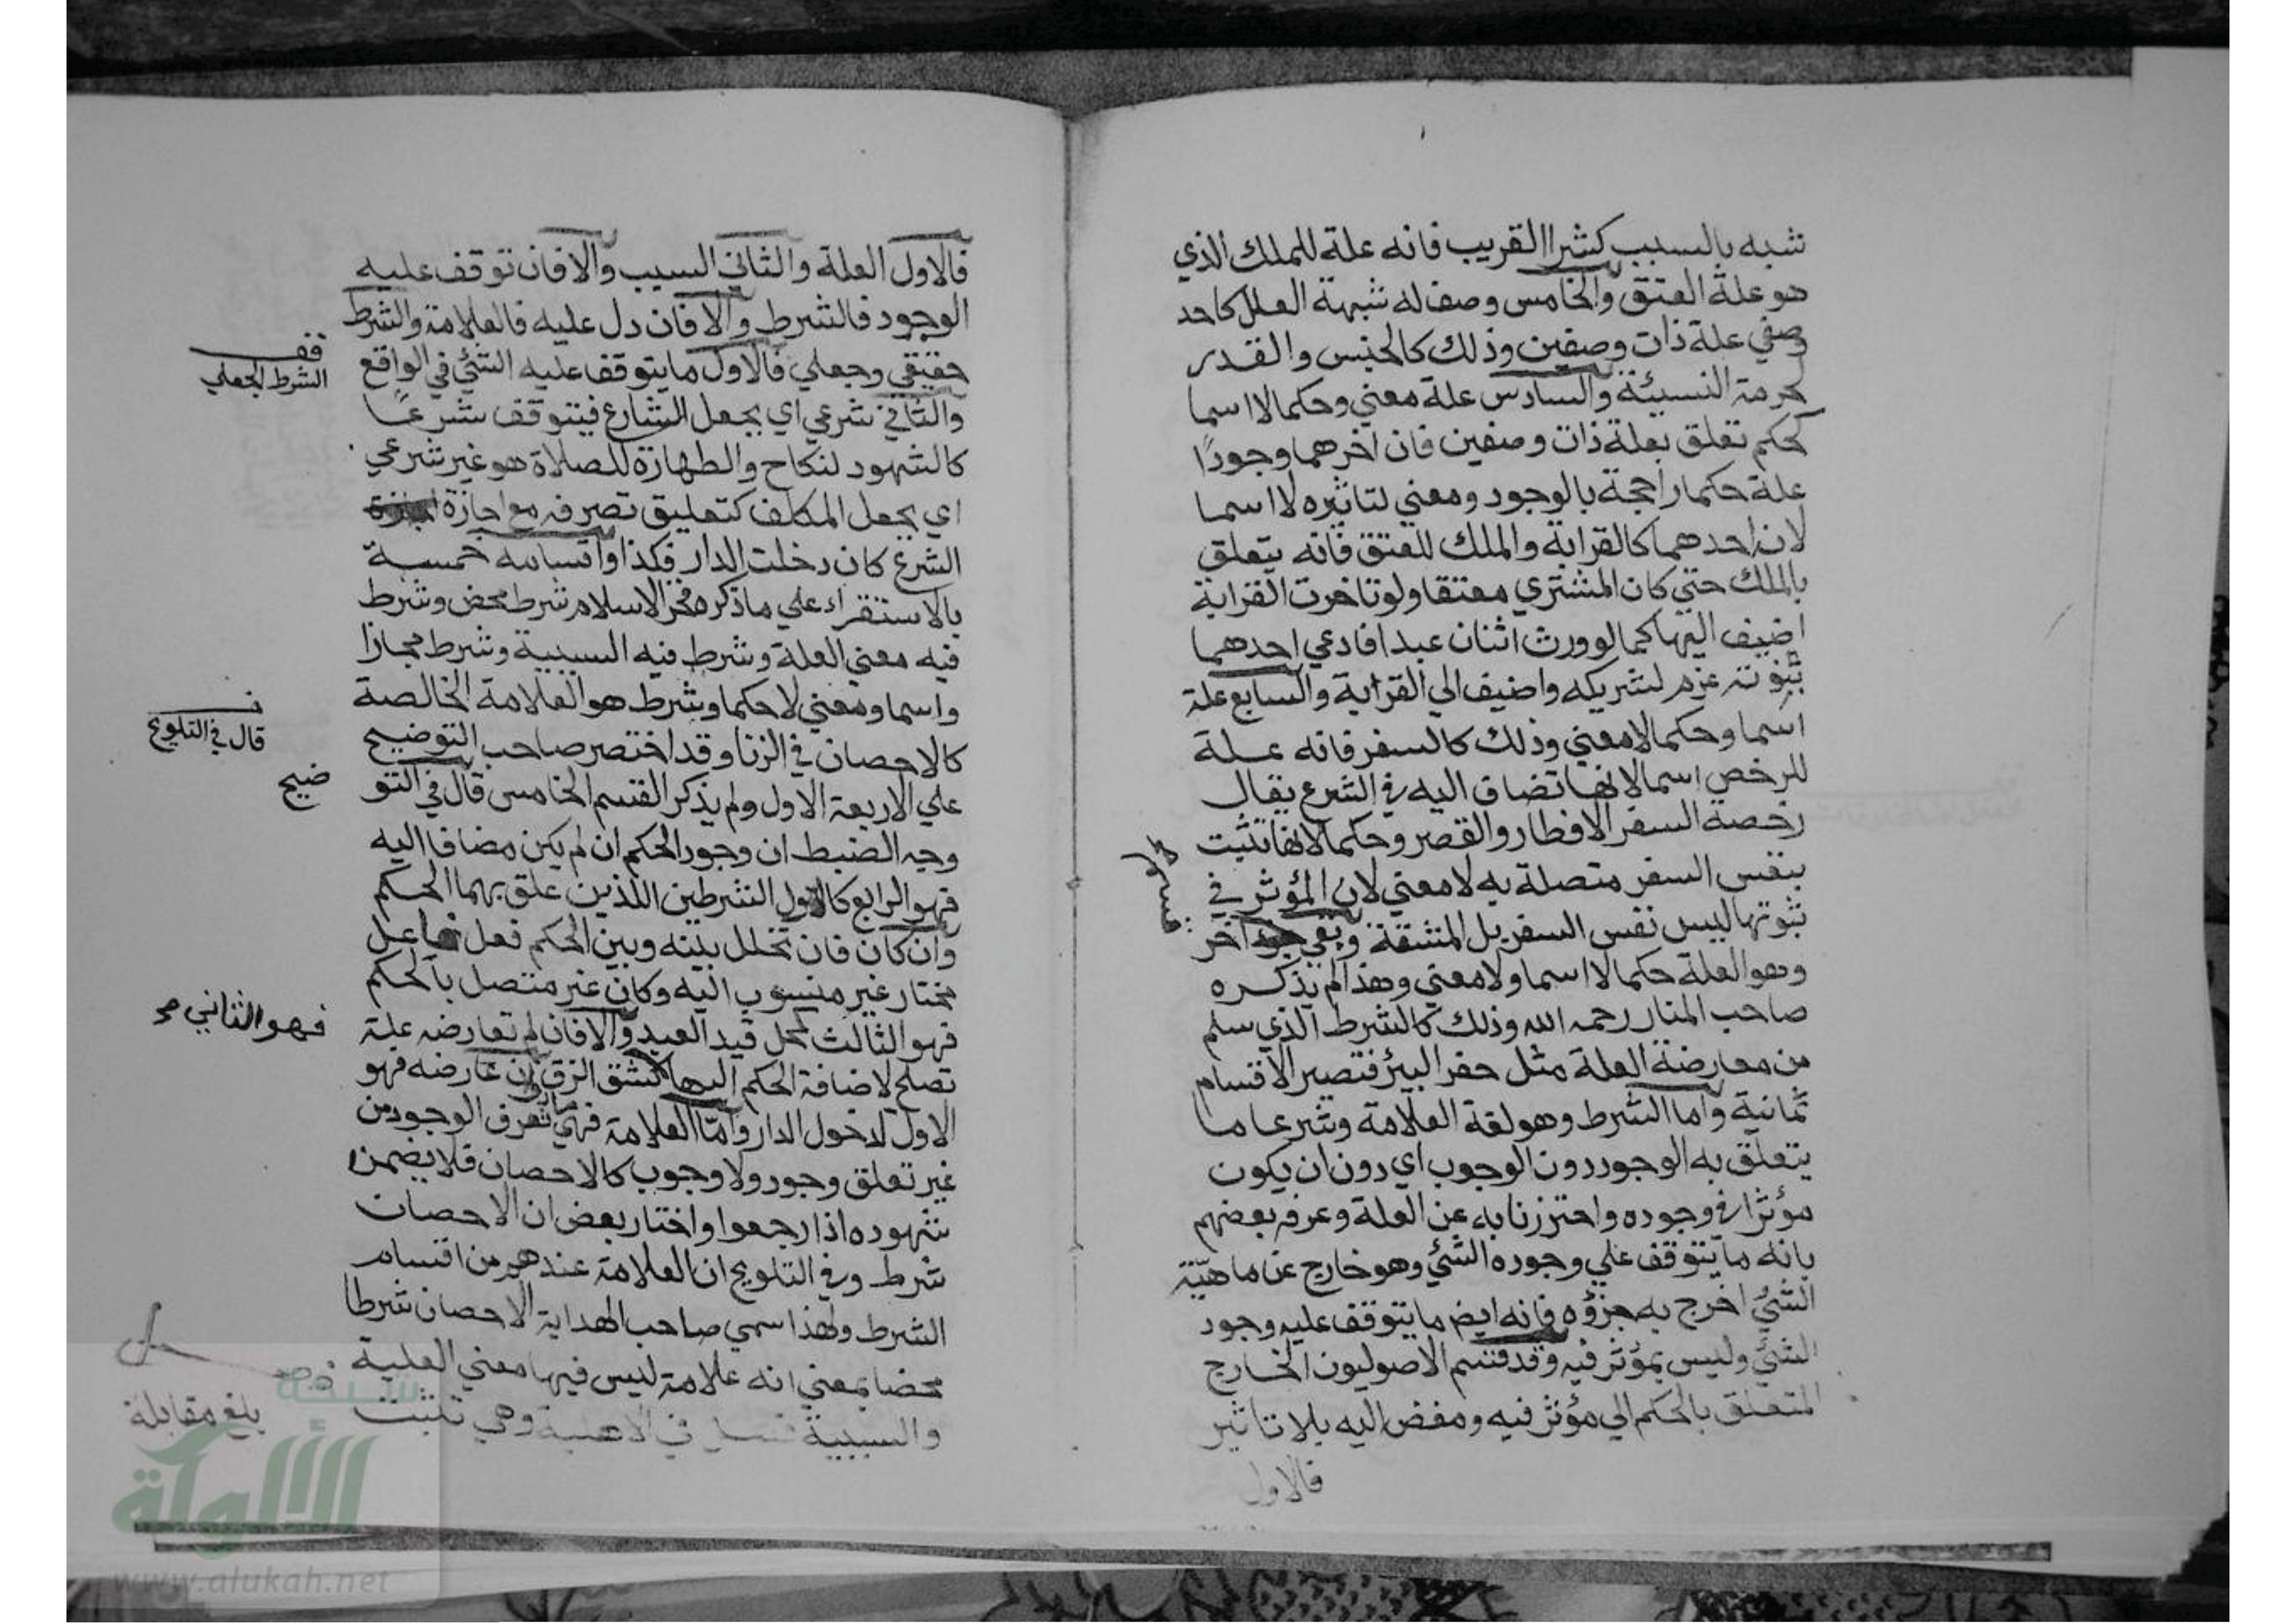 شبه بالسبب كشرا القريب فانه علة للملك الذي
هو علة العتق والخامس وصف له شبهة العلل كاحد
وصفي علة ذات وصفين وذلك كالجنس والقدر
لحرمة النسيئة والسادس علة معني وحكما لا اسما
كحكم تعلق بعلة ذات وصفين فان اخرهما وجودًا
علة حكما راجحة بالوجود ومعني لتاثيره لا اسما
لان احدهما كالقرابة والملك للعتق فانه يتعلق
بالملك حتي كان المشتري معتقا ولو تاخرت القرابة
اضيف اليها كما لو ورث اثنان عبدا فادعي احدهما
بنوته غرم لشريكه واضيف الي القرابة والسابع علة
اسما وحكما لا معني وذلك كالسفر فانه علة
للرخص اسما لانها تضاف اليه في الشرع يقال
رخصة السفر الافطار والقصر وحكما لانها تثبت
بنفس السفر متصلة به لا معني لان المؤثر في
ثبوتها ليس نفس السفر بل المشقة وبقي اخر
وهو العلة حكما لا اسما ولا معني وهذا لم يذكره
صاحب المنار رحمه الله وذلك كالشرط الذي سلم
من معارضة العلة مثل حفر البئر فتصير الاقسام
ثمانية واما الشرط وهو لغة العلامة وشرعا ما
يتعلق به الوجود دون الوجوب اي دون ان يكون
مؤثرا في وجوده واحترزنا به عن العلة وعرفه بعضهم
بانه ما يتوقف علي وجوده الشئ وهو خارج عن ماهيّة
الشئ اخرج به جزؤه فانه ايض ما يتوقف عليه وجود
الشئ وليس بمؤثر فيه وقد قسم الاصوليون الخارج
المتعلق بالحكم الي مؤثر فيه ومفض اليه بلا تاثير
فالاول
فالاول العلة والثاني السبب والا فان توقف عليه
الوجود فالشرط والا فان دل عليه فالعلامة والشرط
حقيقي وجعلي فالاول ما يتوقف عليه الشئ في الواقع
قف
الشرط الجعلي
والثاني شرعي اي بجعل الشارع فيتوقف شرعًا
كالشهود لنكاح والطهارة للصلاة هو غير شرعي
اي بجعل المكلف كتعليق تصرفه مع اجازة
الشرع كان دخلت الدار فكذا واقسامه خمسة
بالاستقراء علي ما ذكره فخر الاسلام شرط محض وشرط
فيه معني العلة وشرط فيه السببية وشرط مجازا
واسما ومعني لا حكما وشرط هو العلامة الخالصة
كالاحصان في الزنا وقد اختصر صاحب التوضيح
قال في التلويح
علي الاربعة الاول ولم يذكر القسم الخامس قال في التو
ضيح
وجه الضبط ان وجود الحكم ان لم يكن مضافا اليه
فهو الرابع كاول الشرطين اللذين علق بهما الحكم
وان كان فان تخلل بينه وبين الحكم فعل فاعل
مختار غير منسوب اليه وكان غير متصل بالحكم
فهو الثالث كحل قيد العبد والا فان لم تعارضه علة
فهو الثاني صح
تصلح لاضافة الحكم اليها كشق الزق وان عارضه فهو
الاول لدخول الدار وامّا العلامة فهي ما تعرف الوجود من
غير تعلق وجود ولا وجوب كالاحصان فلا يضمن
شهوده اذا رجعوا واختار بعض ان الاحصان
شرط وفي التلويح ان العلامة عندهم من اقسام
الشرط ولهذا سمي صاحب الهداية الاحصان شرطا
محضا بمعني انه علامة ليس فيها معني العلية
والسببية فصل في الاهلية وهي تثبت
بلغ مقابلة
شبكة
الألوكة
www.alukah.net